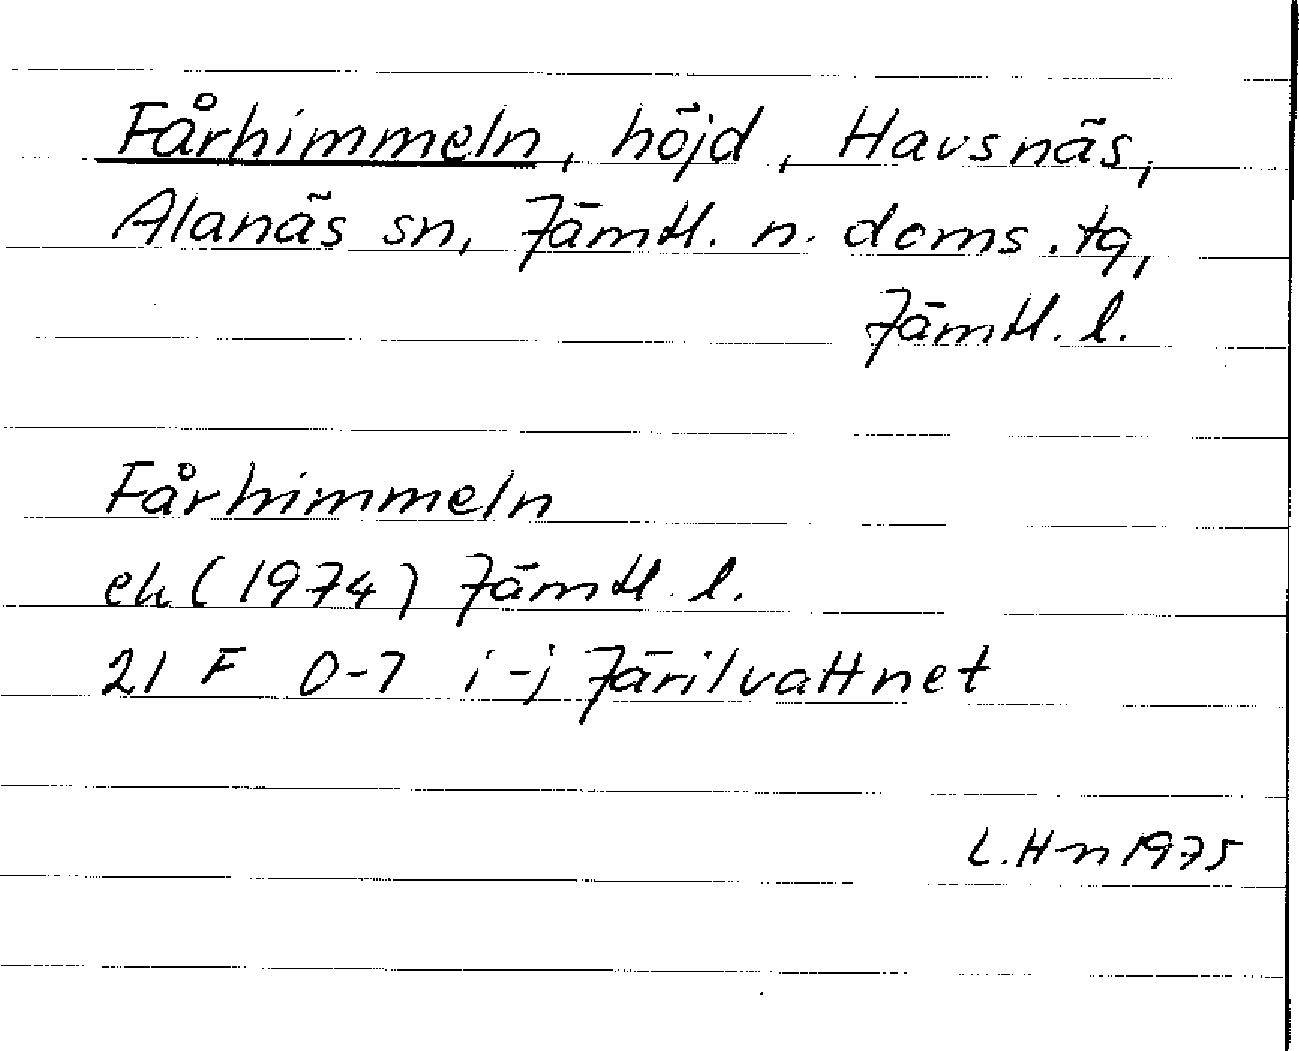 Fårhimmeln, höjd, Havsnäs,
Alanäs sn, Jämtl. n. doms. tg,
Jämtl. l.
Fårhimmeln
ek (1974) Jämtl. l.
21 F 0-7 i-j Järilvattnet
L.H-n 1975